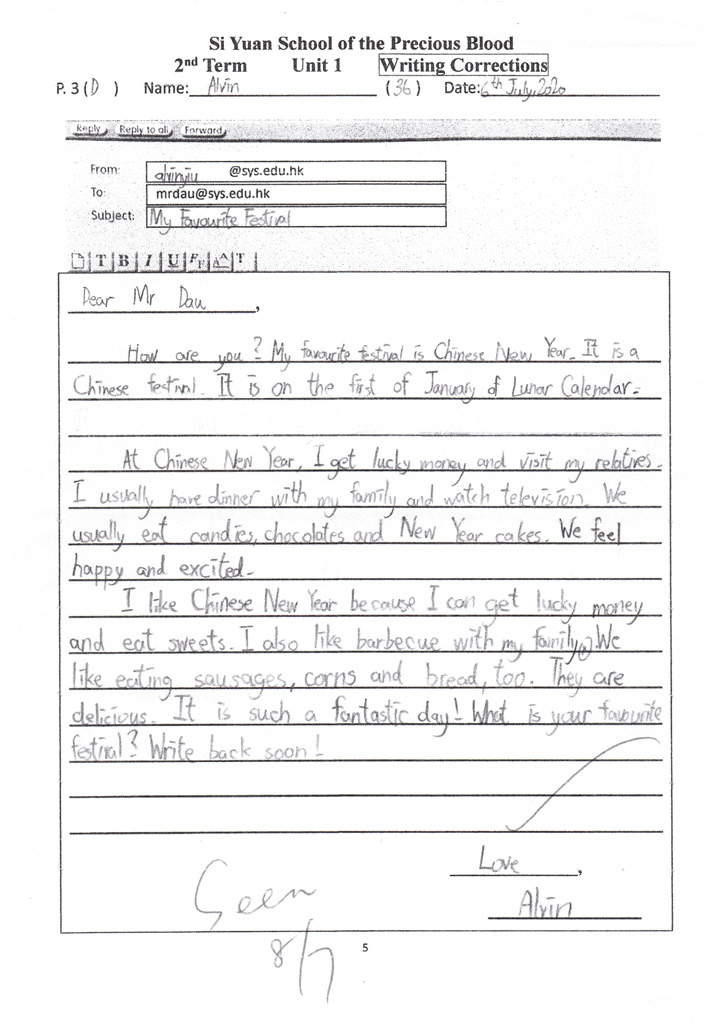 Si Yuan School of the Precious Blood
2nd Term Unit 1 Writing Corrections
P. 3 ( D ) Name: Alvin ( 36 ) Date: 6th July, 2020
Reply Reply to all Forward
From: alvinyiu @sys.edu.hk
To: mrdau@sys.edu.hk
Subject: My Favourite Festival
T B I U
Dear Mr Dau ,
How are you? My favourite festival is Chinese New Year. It is a
Chinese festival. It is on the first of January of Lunar Calendar.
At Chinese New Year, I get lucky money and visit my relatives.
I usually have dinner with my family and watch television. We
usually eat candies, chocolates and New Year cakes. We feel
happy and excited.
I like Chinese New Year because I can get lucky money
and eat sweets. I also like barbecue with my family. We
like eating sausages, corns and bread, too. They are
delicious. It is such a fantastic day! What is your favourite
festival? Write back soon!
Love ,
Alvin
Seen
8/7
5